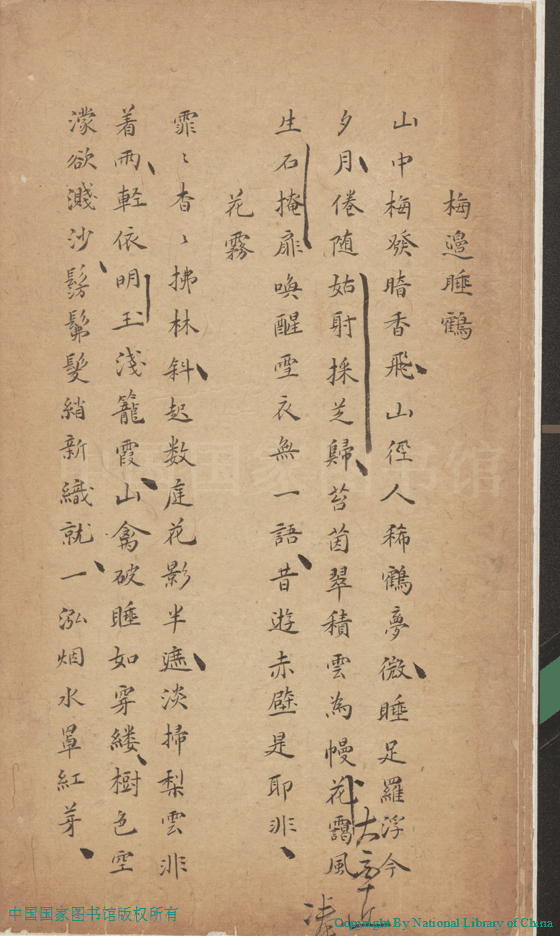 梅邊睡鶴
山中梅發暗香飛山徑人稀鶴夢微睡足羅浮今
夕月倦随姑射採芝歸苔茵翠積雲為幔花靄風
生石掩扉喚醒雪衣無一語昔遊赤壁是耶非
花霧
霏〻杳〻拂林斜起数庭花影半遮淡掃梨雲非
着雨軽依明玉淺籠霞山禽破睡如穿縷樹色空
濛欲濺沙鬅鬆髮綃新織就一泓烟水罩紅芽
中国国家图书馆版权所有
Copyright By National Library of China